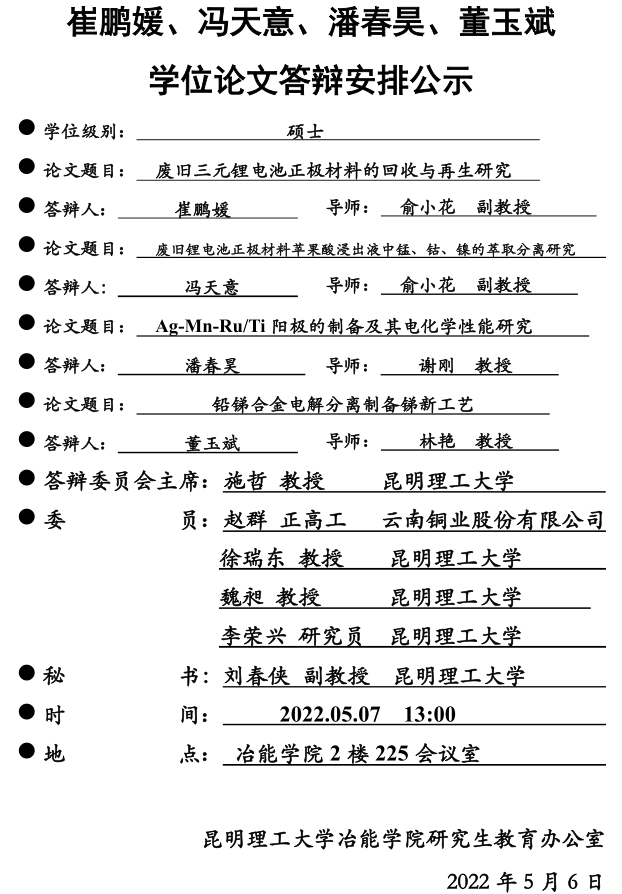 崔鹏媛、冯天意、潘春昊、董玉斌
学位论文答辩安排公示
● 学位级别： 硕士
● 论文题目： 废旧三元锂电池正极材料的回收与再生研究
● 答辩人： 崔鹏媛 导师： 俞小花 副教授
● 论文题目： 废旧锂电池正极材料苹果酸浸出液中锰、钴、镍的萃取分离研究
● 答辩人： 冯天意 导师： 俞小花 副教授
● 论文题目： Ag-Mn-Ru/Ti 阳极的制备及其电化学性能研究
● 答辩人： 潘春昊 导师： 谢刚 教授
● 论文题目： 铅锑合金电解分离制备锑新工艺
● 答辩人： 董玉斌 导师： 林艳 教授
● 答辩委员会主席： 施哲 教授 昆明理工大学
● 委 员： 赵群 正高工 云南铜业股份有限公司
徐瑞东 教授 昆明理工大学
魏昶 教授 昆明理工大学
李荣兴 研究员 昆明理工大学
● 秘 书： 刘春侠 副教授 昆明理工大学
● 时 间： 2022.05.07 13:00
● 地 点： 冶能学院 2 楼 225 会议室
昆明理工大学冶能学院研究生教育办公室
2022 年 5 月 6 日